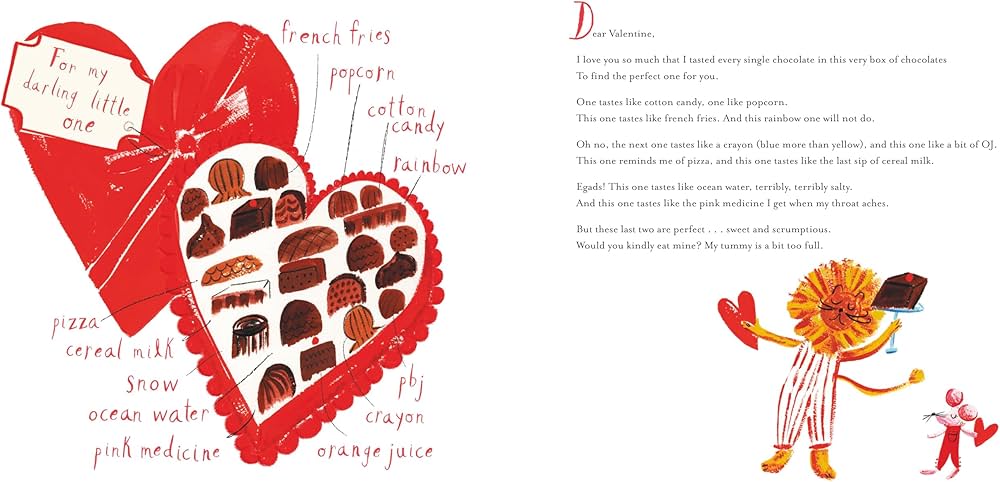 For my
darling little
one
french fries
popcorn
cotton
candy
rainbow
pizza
cereal milk
snow
ocean water
pink medicine
pbj
crayon
orange juice
Dear Valentine,
I love you so much that I tasted every single chocolate in this very box of chocolates
To find the perfect one for you.
One tastes like cotton candy, one like popcorn.
This one tastes like french fries. And this rainbow one will not do.
Oh no, the next one tastes like a crayon (blue more than yellow), and this one like a bit of OJ.
This one reminds me of pizza, and this one tastes like the last sip of cereal milk.
Egads! This one tastes like ocean water, terribly, terribly salty.
And this one tastes like the pink medicine I get when my throat aches.
But these last two are perfect . . . sweet and scrumptious.
Would you kindly eat mine? My tummy is a bit too full.